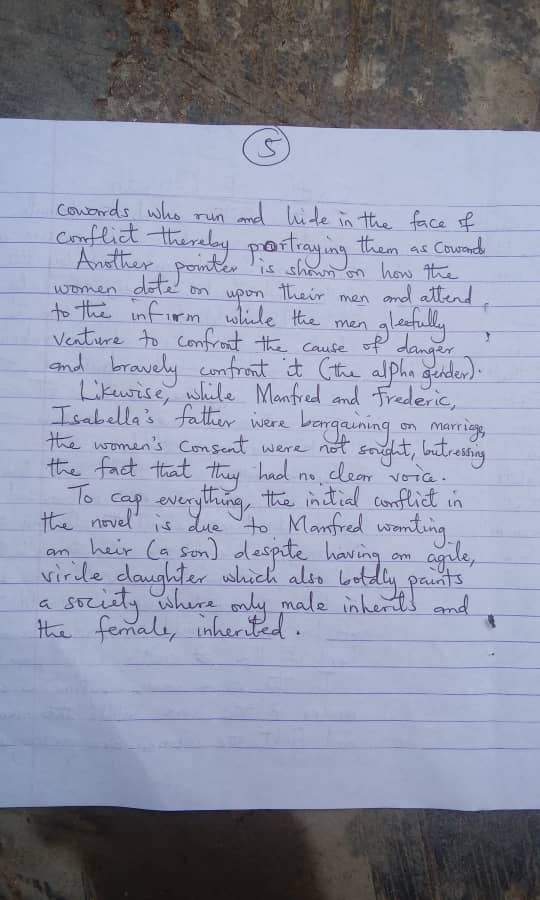 5
cowards who run and hide in the face of
conflict thereby portraying them as Coward
Another pointer is shown on how the
women dote on upon their men and attend
to the infirm while the men gleefully
venture to confront the cause of danger
and bravely confront it (the alpha gender).
Likewise, while Manfred and Frederic,
Isabella's father were bargaining on marriage,
the women's consent were not sought, butressing
the fact that they had no clear voice.
To cap everything, the initial conflict in
the novel is due to Manfred wanting
an heir (a son) despite having an agile,
virile daughter which also boldly paints
a society where only male inherits and
the female, inherited.